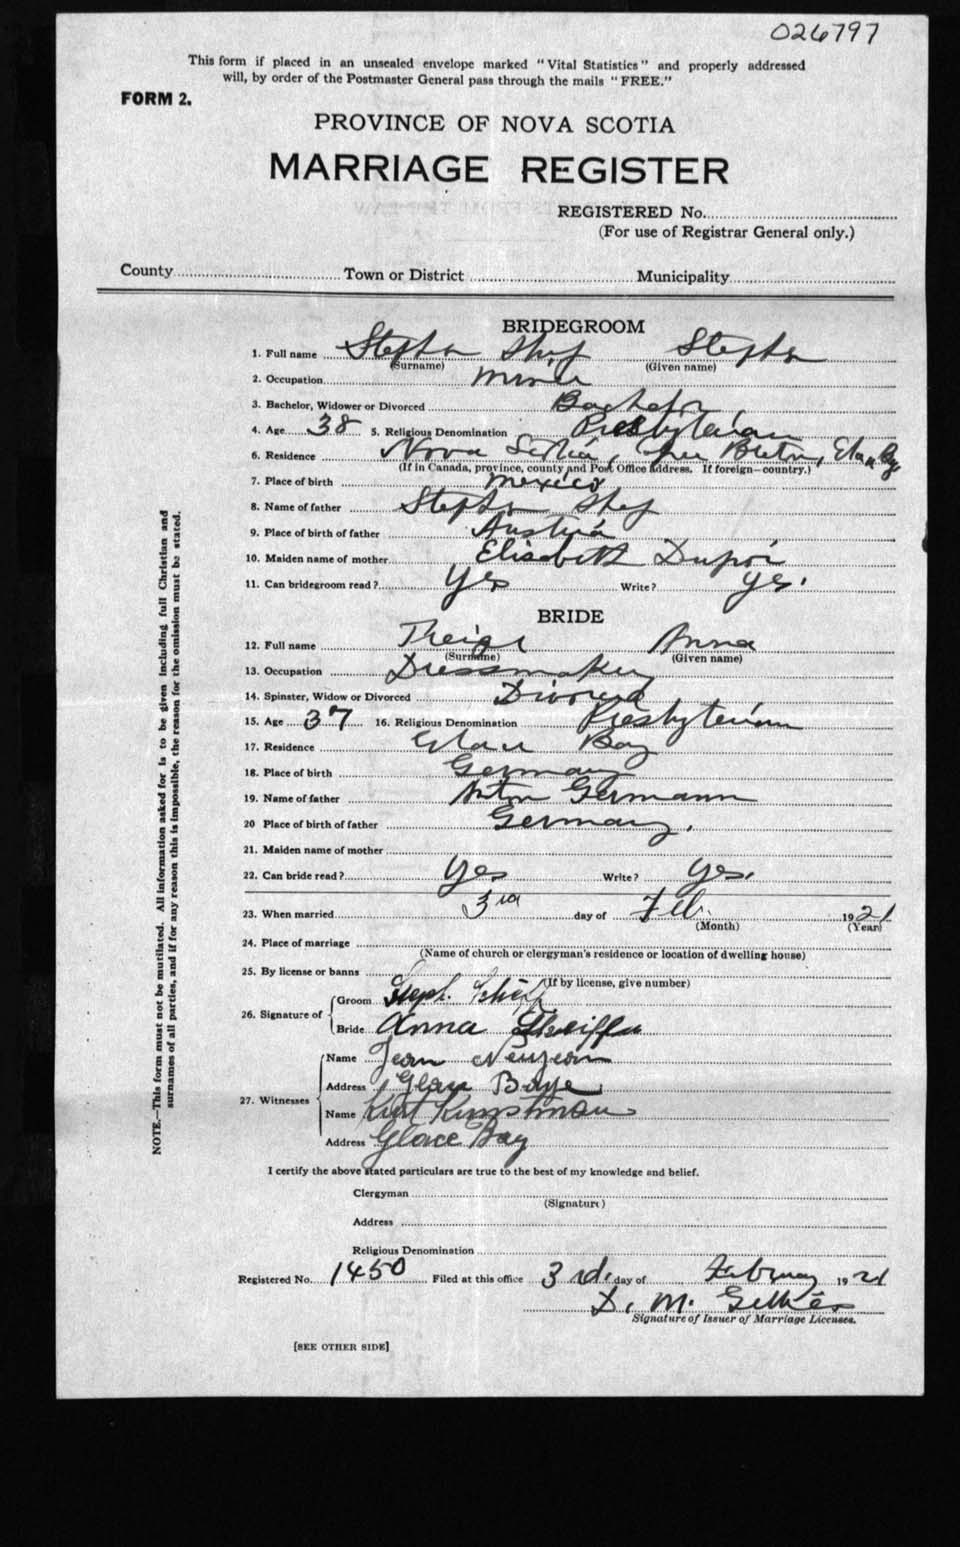 026797
This form if placed in an unsealed envelope marked "Vital Statistics" and properly addressed
will, by order of the Postmaster General pass through the mails "FREE."
FORM 2.
PROVINCE OF NOVA SCOTIA
MARRIAGE REGISTER
REGISTERED No.
(For use of Registrar General only.)
County Town or District Municipality
BRIDEGROOM
1. Full name Stephen Shif Stephen
(Surname) (Given name)
2. Occupation Miner
3. Bachelor, Widower or Divorced Bachelor
4. Age 38 5. Religious Denomination Presbyterian
6. Residence Nova Scotia, Cape Breton,
(If in Canada, province, county and Post Office address. If foreign—country.)
7. Place of birth Mexico
8. Name of father Stephen Shif
9. Place of birth of father Austria
10. Maiden name of mother Elisabeth Dupoi
11. Can bridegroom read? Yes Write? Yes.
BRIDE
12. Full name Anna
(Surname) (Given name)
13. Occupation Dressmaker
14. Spinster, Widow or Divorced Divorced
15. Age 37 16. Religious Denomination Presbyterian
17. Residence Glace Bay
18. Place of birth Germany
19. Name of father Anton Germann
20 Place of birth of father Germany.
21. Maiden name of mother
22. Can bride read? Yes Write? Yes.
23. When married 3rd day of Feb. 1921
(Month) (Year)
24. Place of marriage
(Name of church or clergyman's residence or location of dwelling house)
25. By license or banns
(If by license, give number)
26. Signature of
Groom Steph.
Bride Anna
27. Witnesses
Name Jean Neujean
Address Glace Baye
Name Kurt Kunstman
Address Glace Bay
I certify the above stated particulars are true to the best of my knowledge and belief.
Clergyman
(Signature)
Address
Religious Denomination
Registered No. 1450 Filed at this office 3rd. day of February 1921
D. M.
Signature of Issuer of Marriage Licenses.
[SEE OTHER SIDE]
NOTE.—This form must not be mutilated. All information asked for is to be given including full Christian and
surnames of all parties, and if for any reason this is impossible, the reason for the omission must be stated.